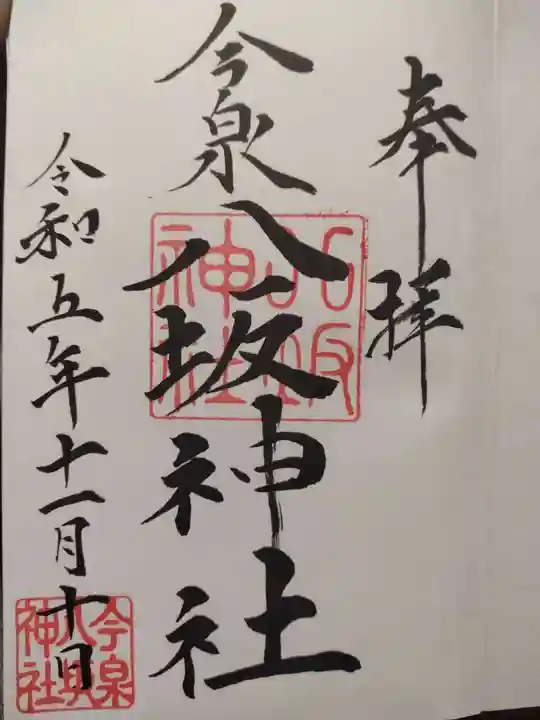 奉拝
今泉八坂神社
八坂神社
令和五年十一月十日
今泉八坂神社